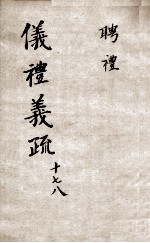 聘禮
儀禮義疏
十七八